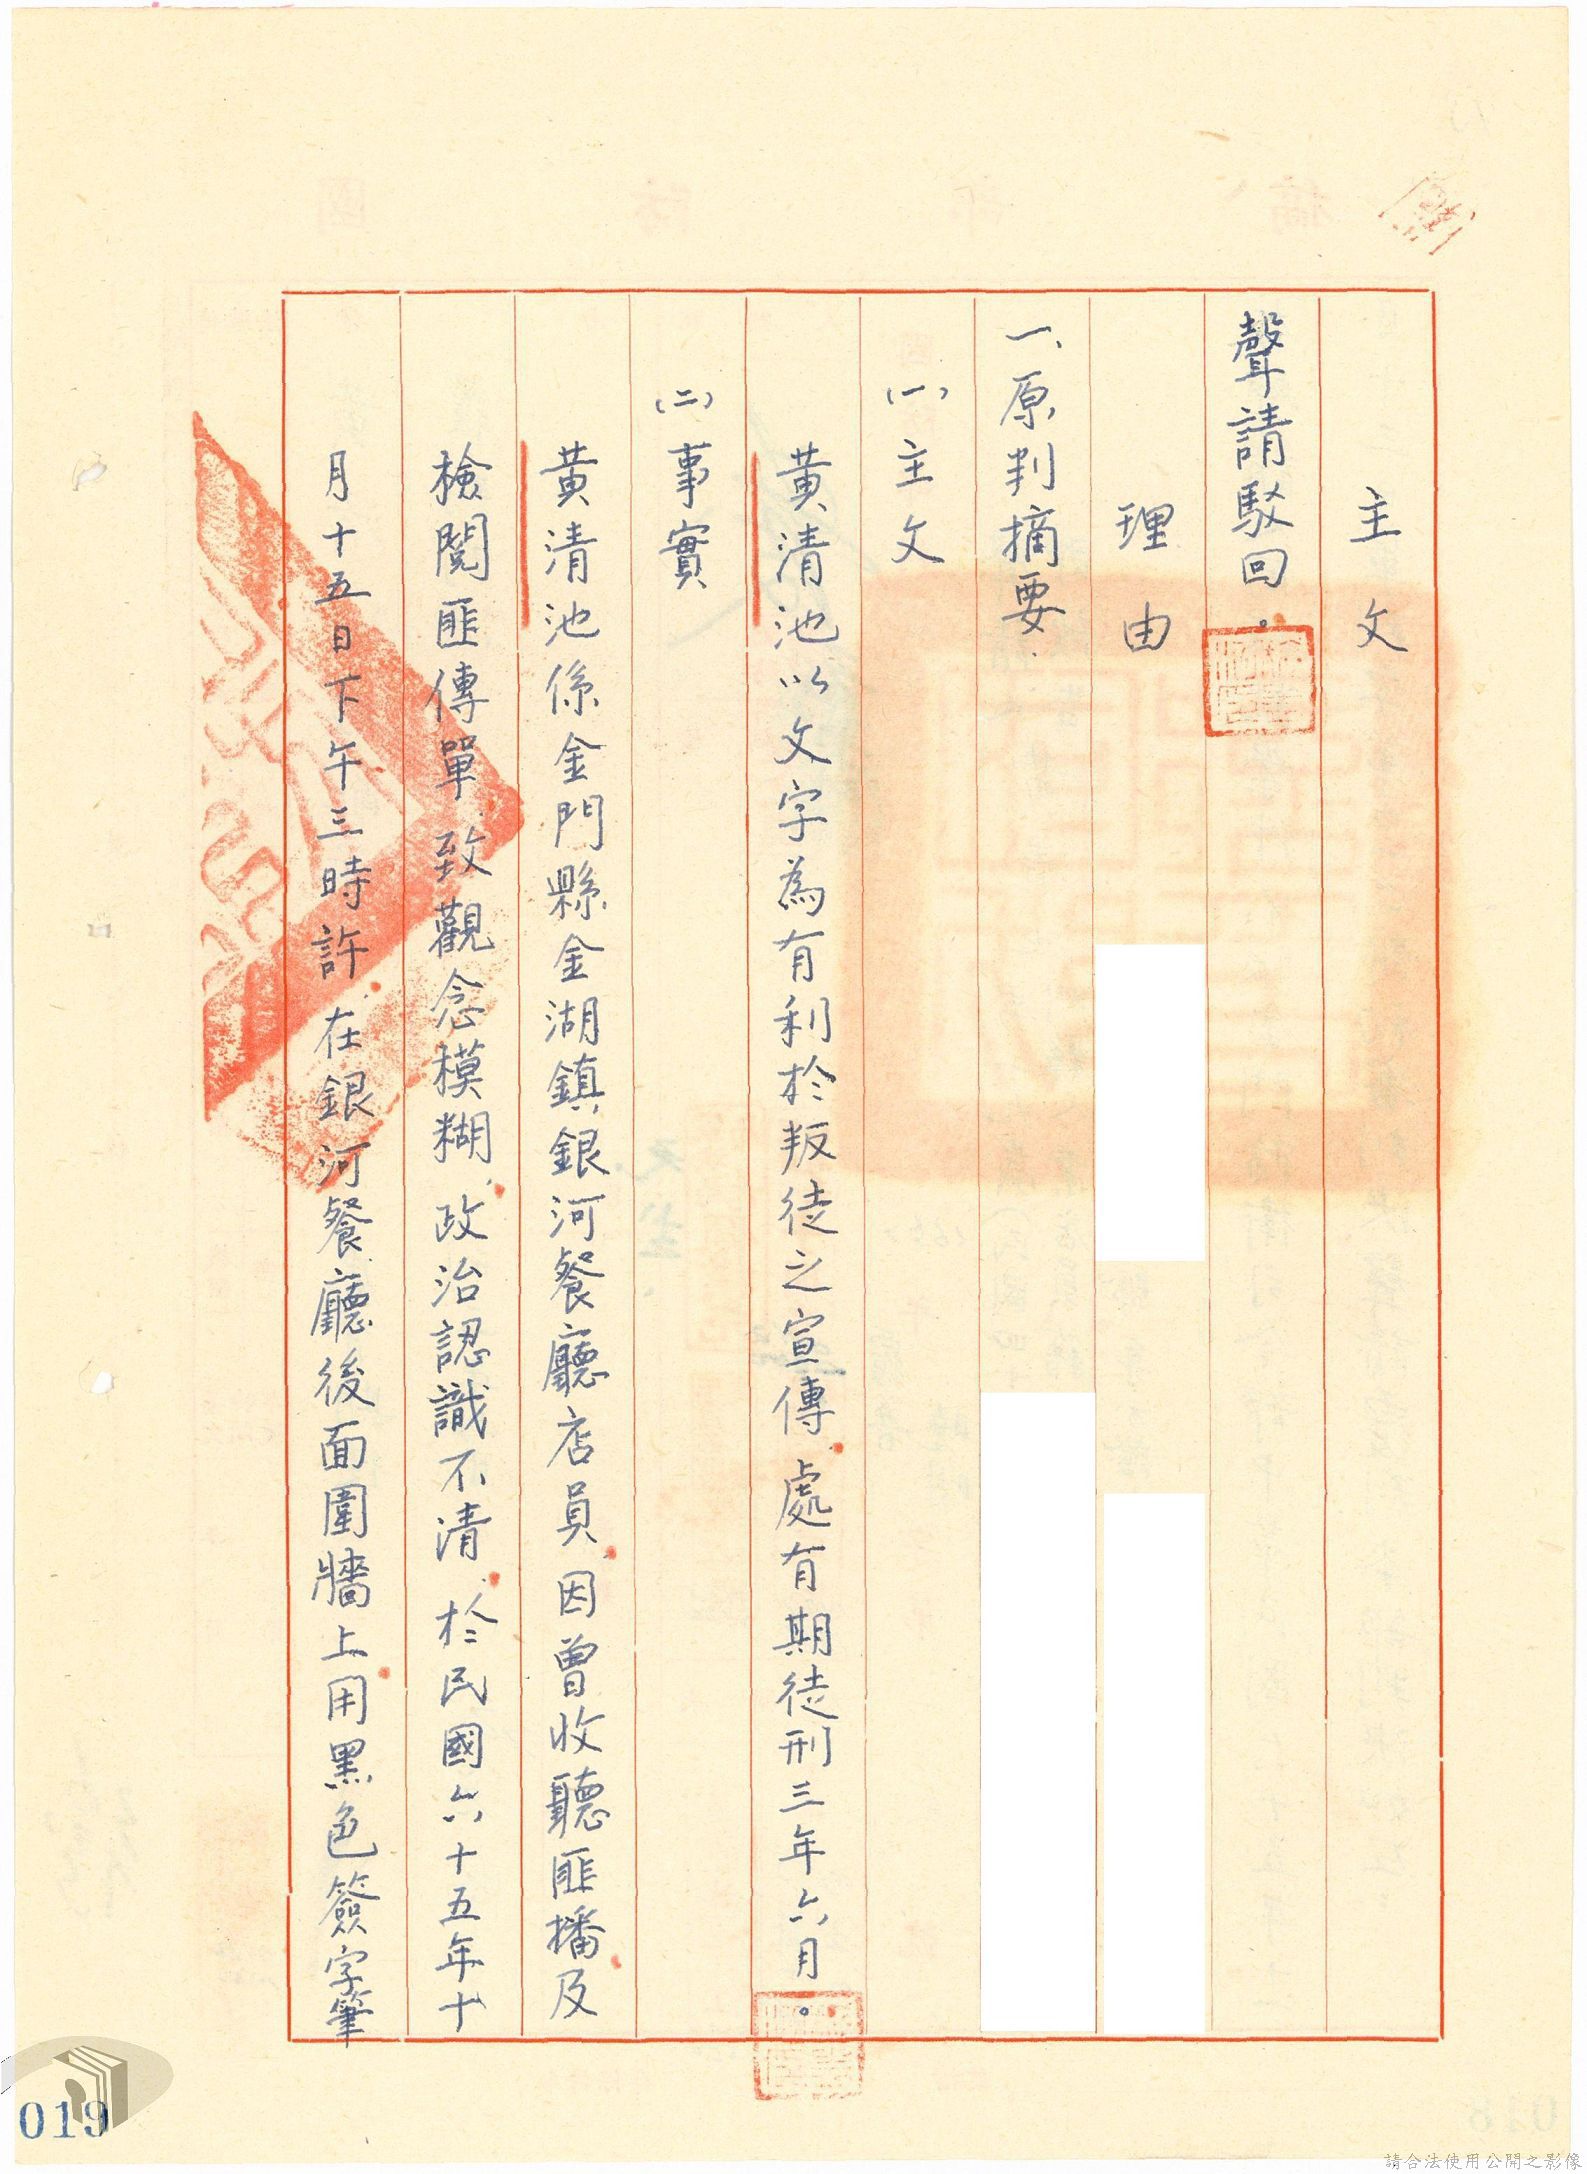 主文
聲請駁回。
理由
一、原判摘要
(一)主文
黃清池以文字為有利於叛徒之宣傳，處有期徒刑三年六月。
(二)事實
黃清池係金門縣金湖鎮銀河餐廳店員，因曾收聽匪播及
檢閱匪傳單，致觀念模糊，政治認識不清，於民國六十五年十
月十五日下午三時許，在銀河餐廳後面圍牆上，用黑色簽字筆
019
請合法使用公開之影像